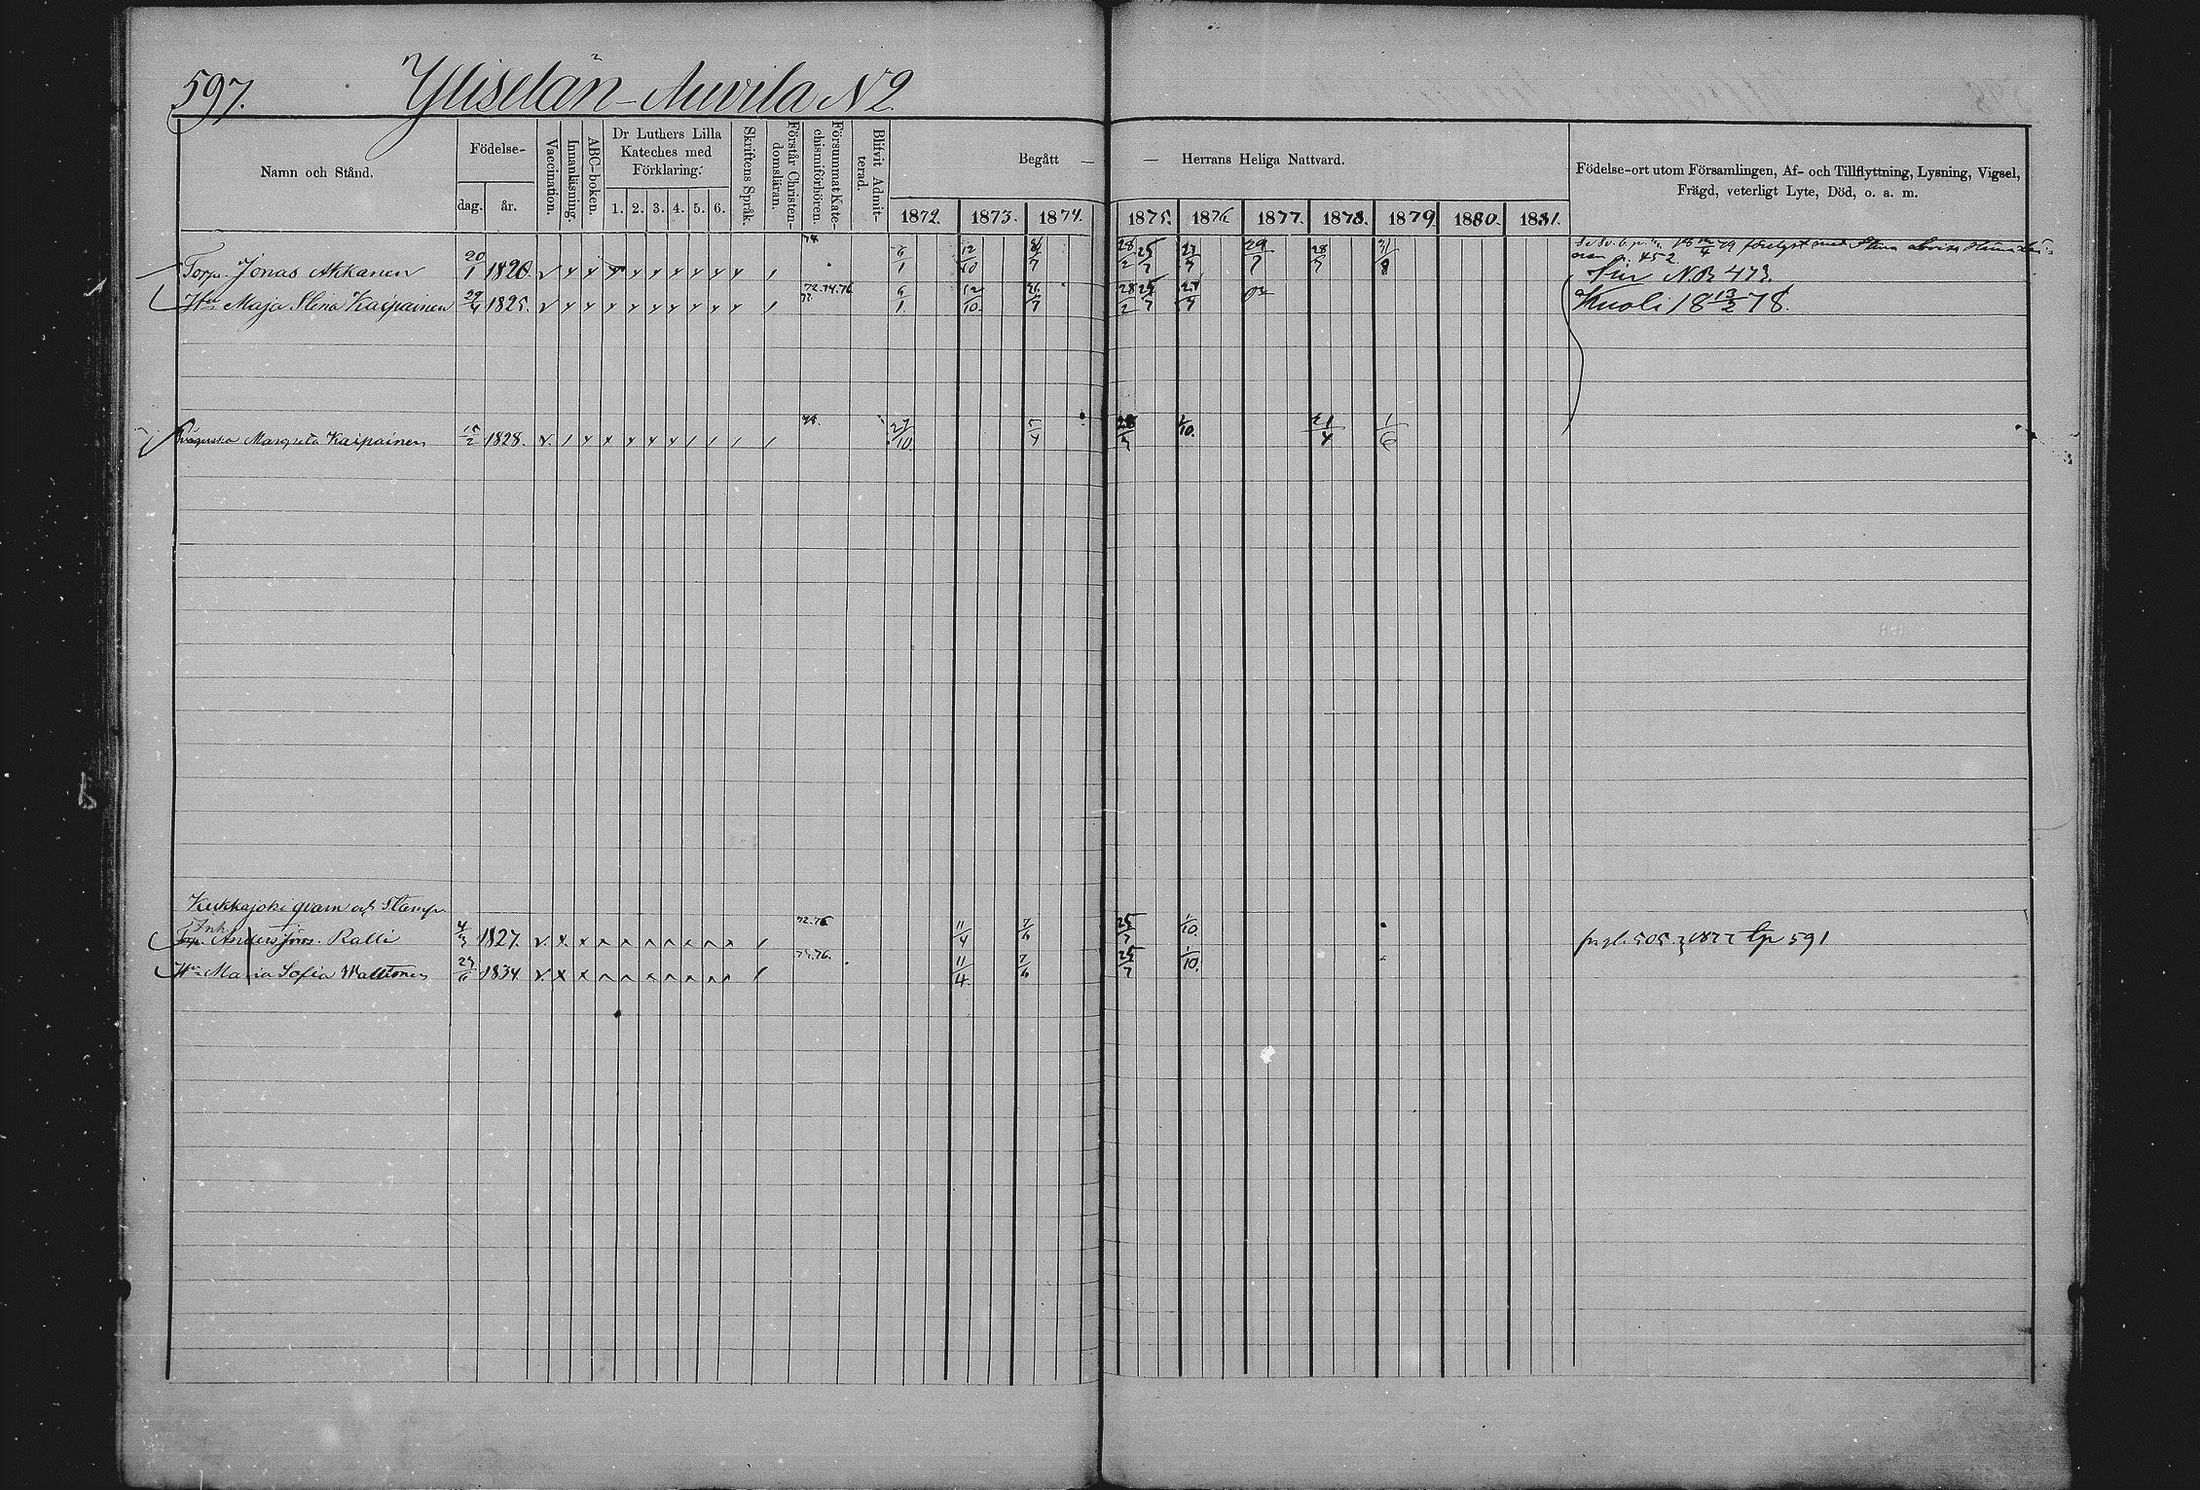 597. Yliselän-Auvila N2.
Namn och Stånd.
Födelse-
dag. år.
Vaccination.
Innanläsning.
ABC-boken.
Dr Luthers Lilla
Kateches med
Förklaring.
1. 2. 3. 4. 5. 6.
Skriftens Språk.
Förstår Christen-
domsläran.
Försummat Kate-
chismiförhören.
Blifvit Admit-
terad.
Begått — — Herrans Heliga Nattvard.
1872. 1873. 1874. 1875. 1876. 1877. 1878. 1879. 1880. 1881.
Födelse-ort utom Församlingen, Af- och Tillflyttning, Lysning, Vigsel,
Frägd, veterligt Lyte, Död, o. a. m.
Torp. Jonas Akkanen 20/1 1820. 74 6/1 12/10 28/2 25/7 29/7 31/8
452
N.B. 473.
Hu Maja Stina Kaipainen 29/4 1825. 72.74.76 6/1 12/10 28/2 25/7 Kuoli 18 13/2 78.
Margreta Kaipainen 15/2 1828. 27/10 5/4 1/10. 21/4 1/6
Kukkajoki qvarn och Stamp.
Inh.
Torp. Anders Jöns. Ralli 4/3 1827. 72.76 11/4 7/6 25/7 1/10. 505 1877 tp 591
Hu Maria Sofia Walttonen 1834. 11/4 7/6 25/7 1/10.